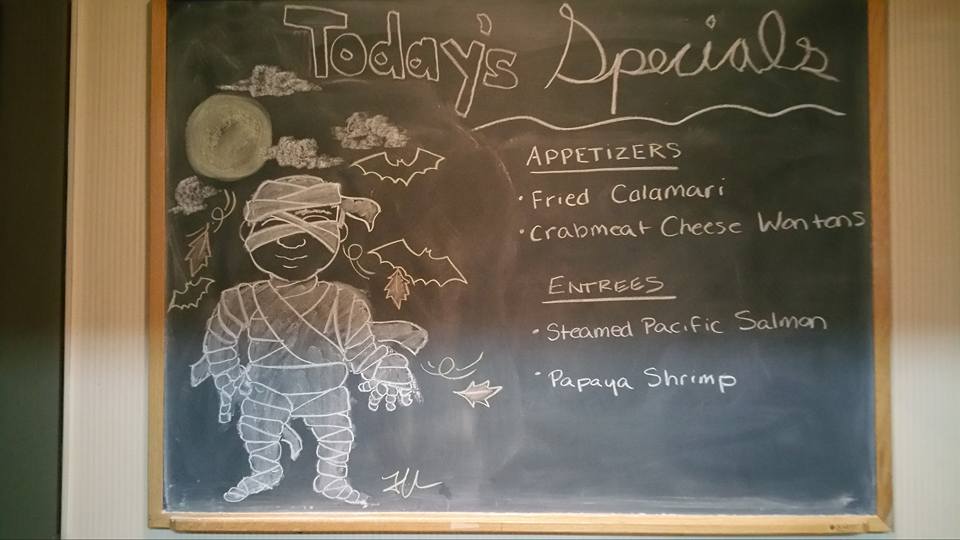 Today's Specials
APPETIZERS
• Fried Calamari
• Crabmeat Cheese Wontons
ENTREES
• Steamed Pacific Salmon
• Papaya Shrimp